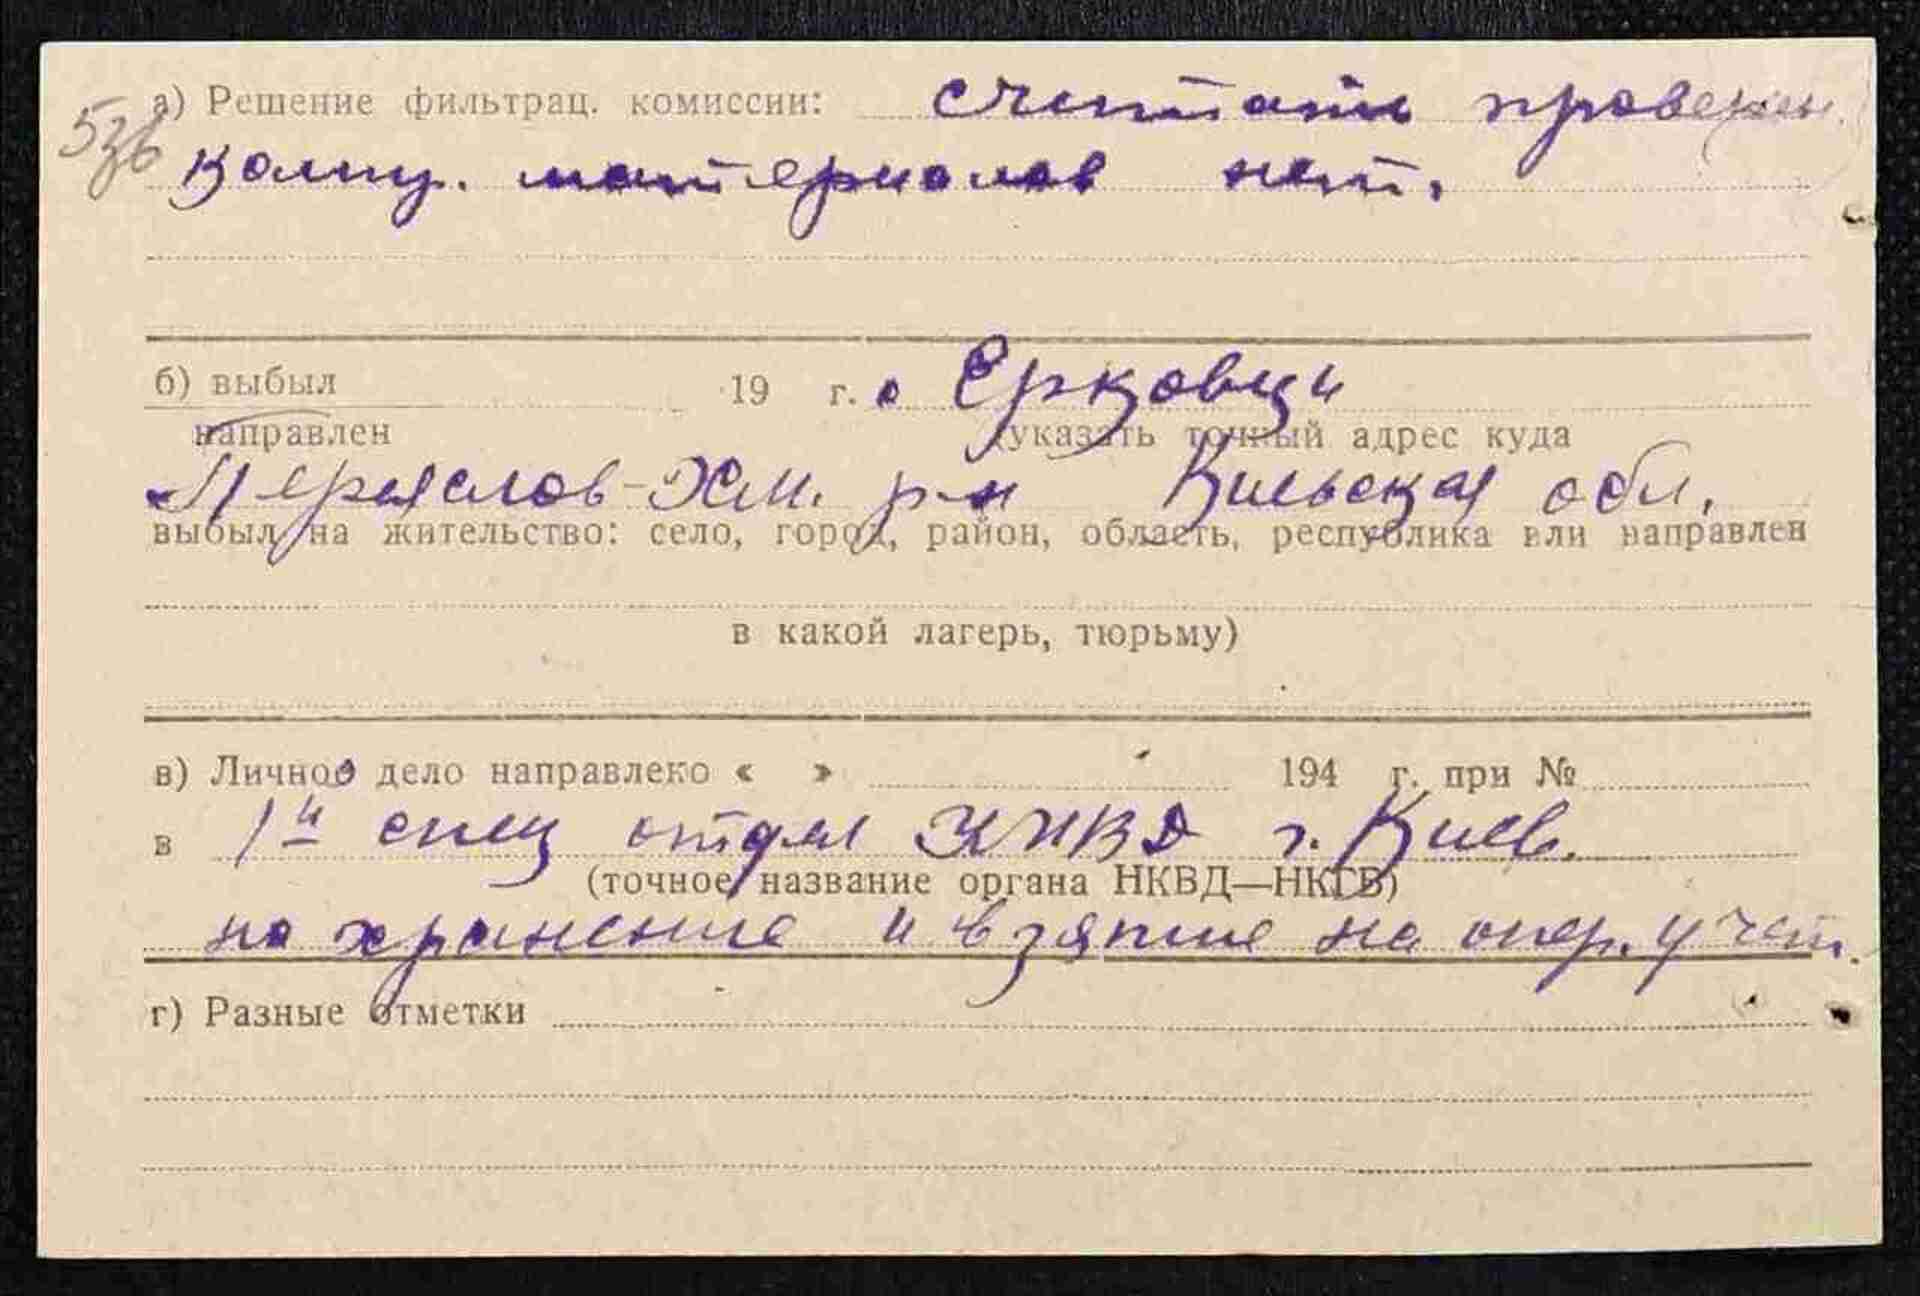 а) Решение фильтрац. комиссии: считать проверен.
комп. материалов нет.
б) выбыл 19 г. с Ерковци
направлен (указать точный адрес куда
Переяслов-Хм. р-н Киевская обл.
выбыл на жительство: село, город, район, область, республика или направлен
в какой лагерь, тюрьму)
в) Личное дело направлено « » 194 г. при №
в 1й спец отдел НКВД г. Киев.
(точное название органа НКВД—НКГБ)
на хранение и взятие на опер. учет.
г) Разные отметки